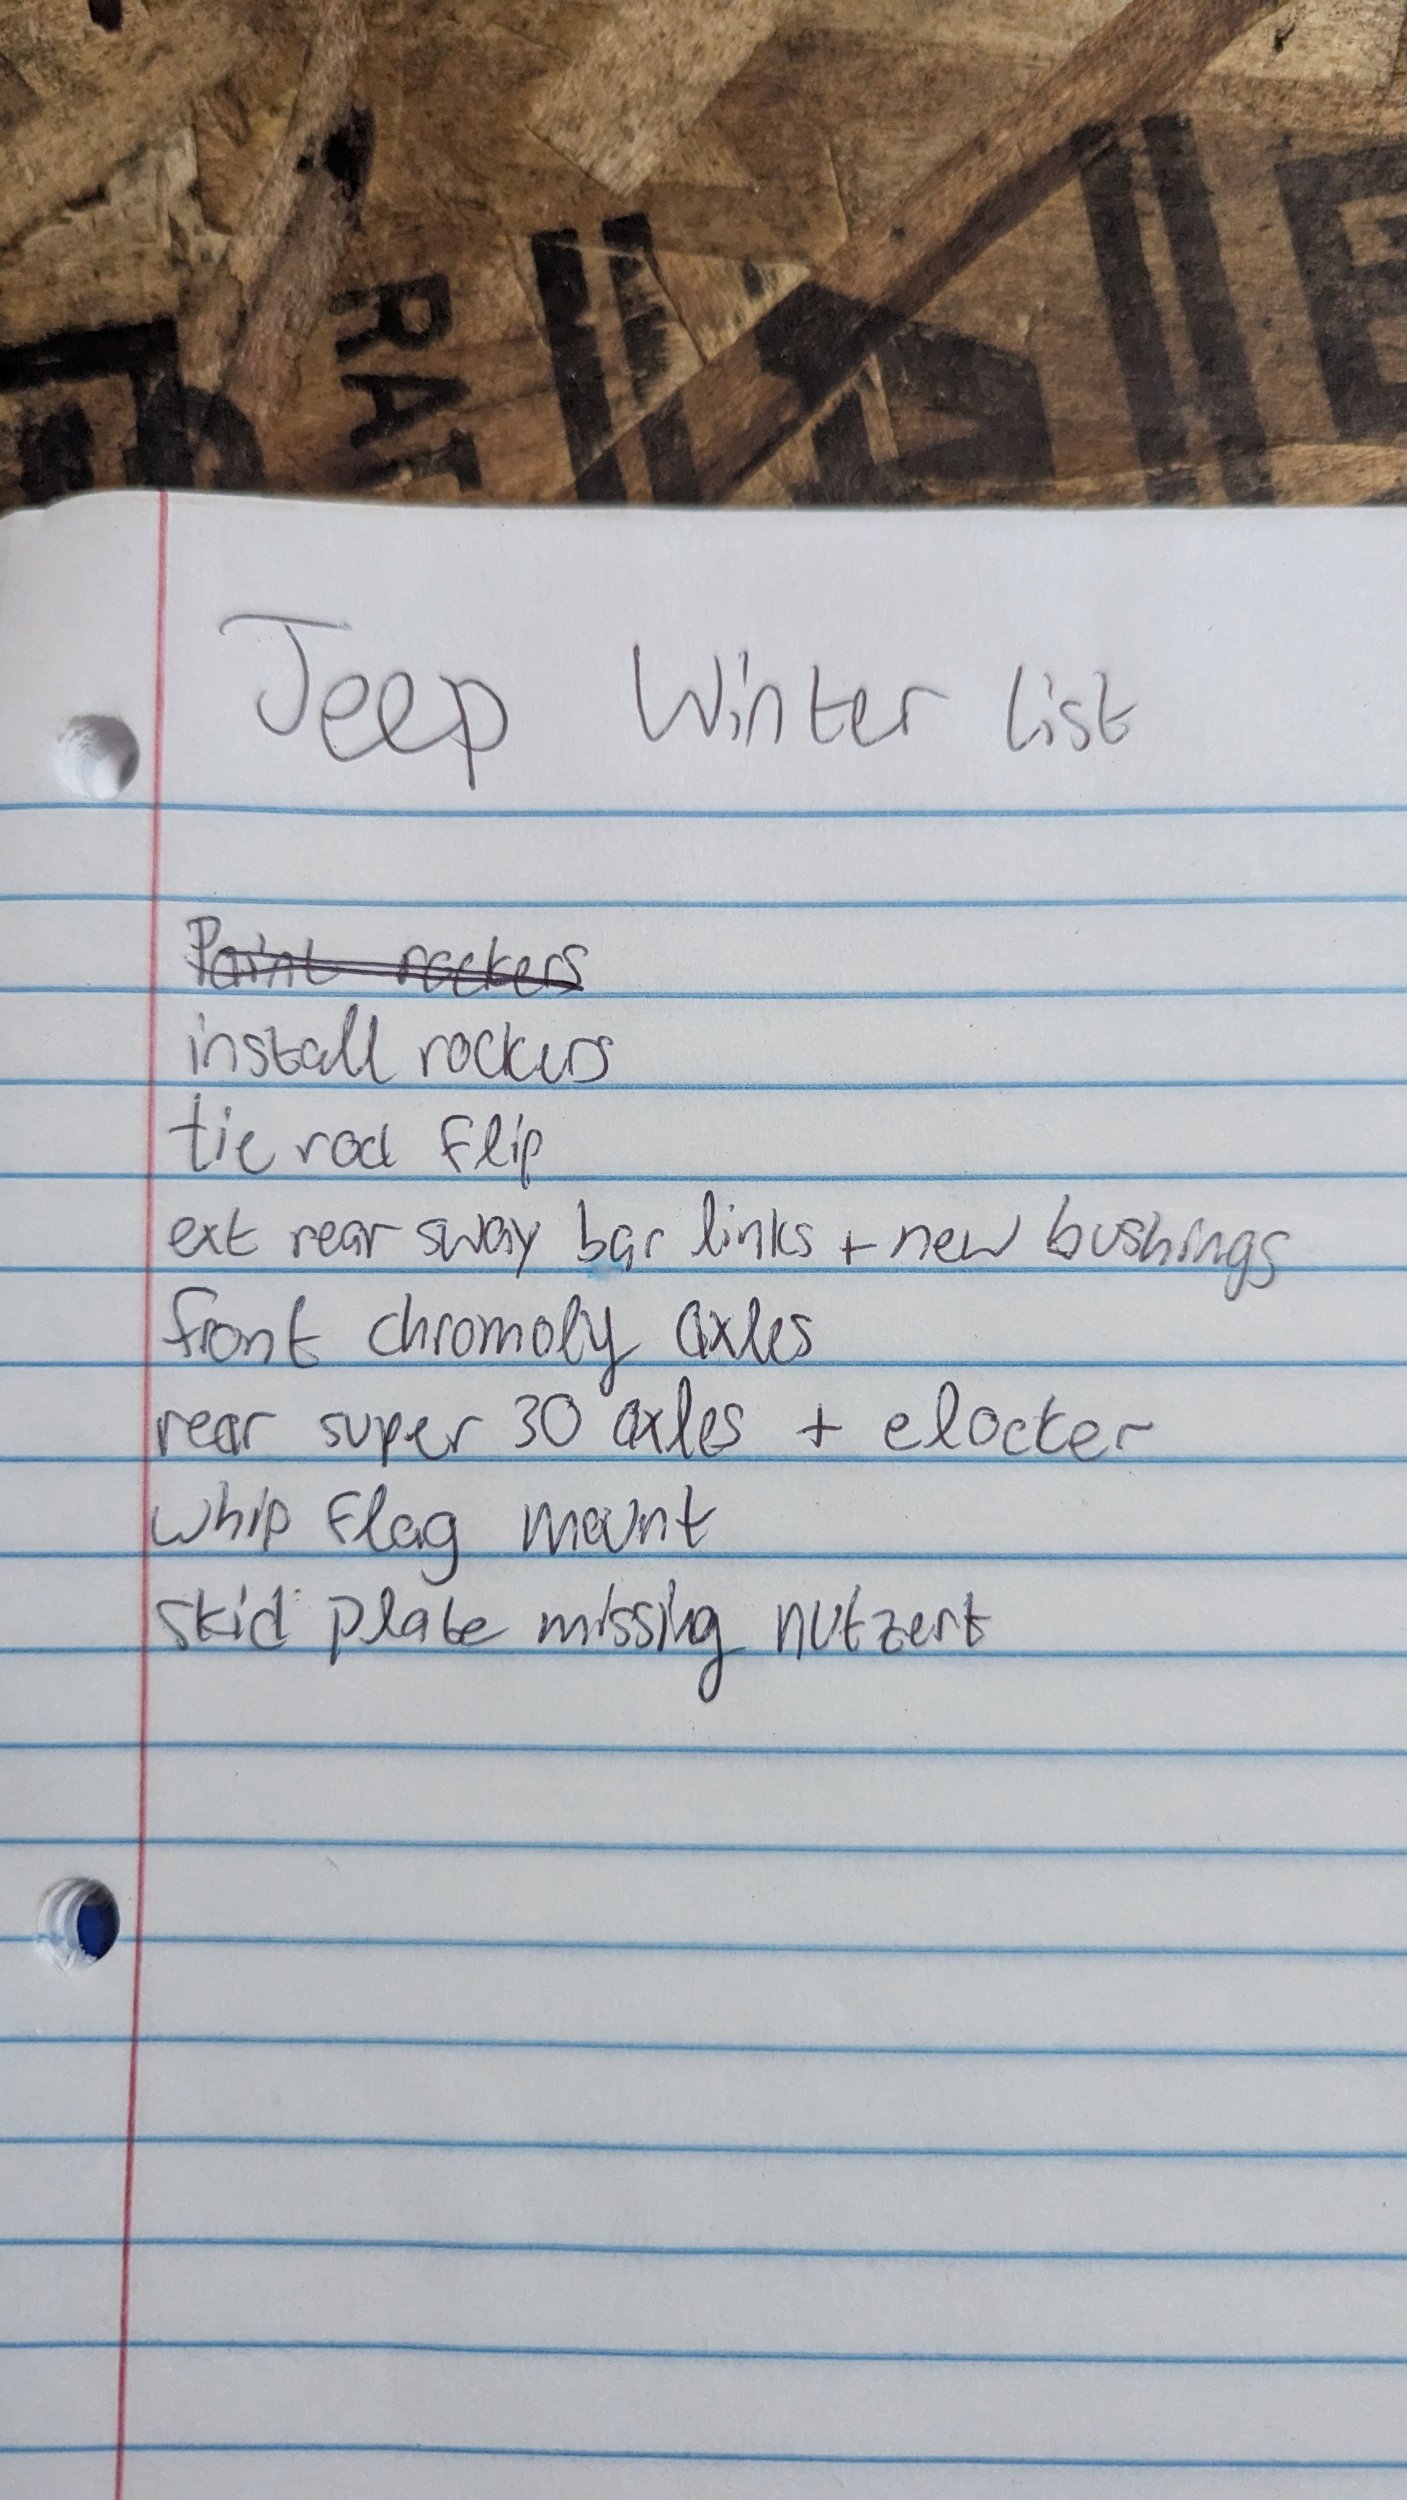 RAT
Jeep Winter list
Paint rockers
install rockers
tie rod flip
ext rear sway bar links + new bushings
front chromoly axles
rear super 30 axles + elocker
whip flag mount
skid plate missing nutzert